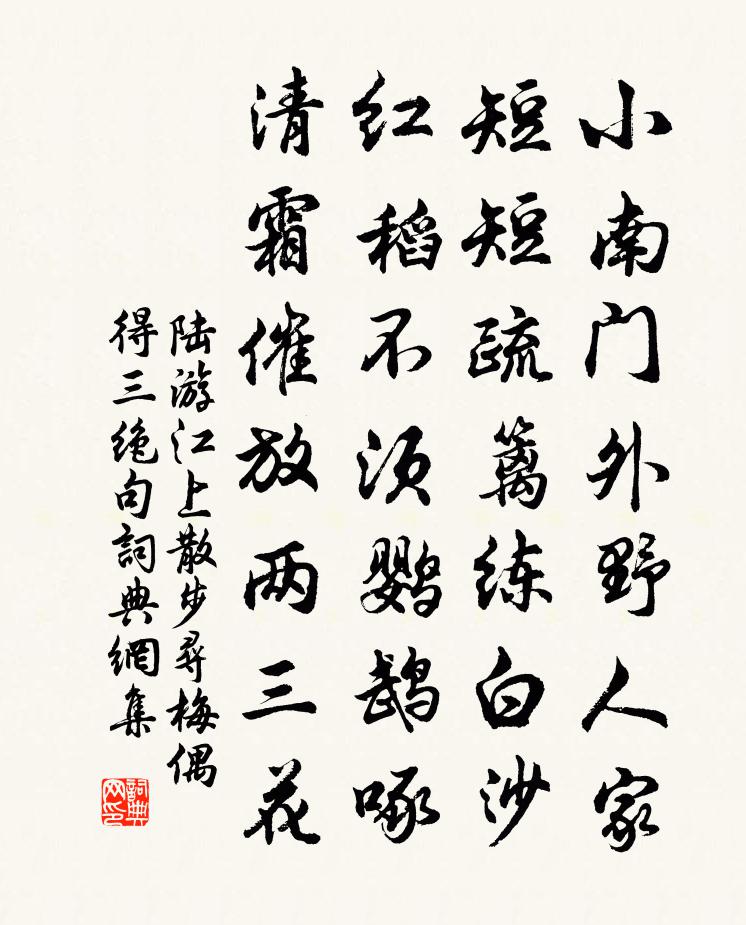 小南门外野人家
短短疏篱练白沙
红稻不须鹦鹉啄
清霜催放两三花
陆游江上散步寻梅偶
得三绝句詞典網集
詞典网印